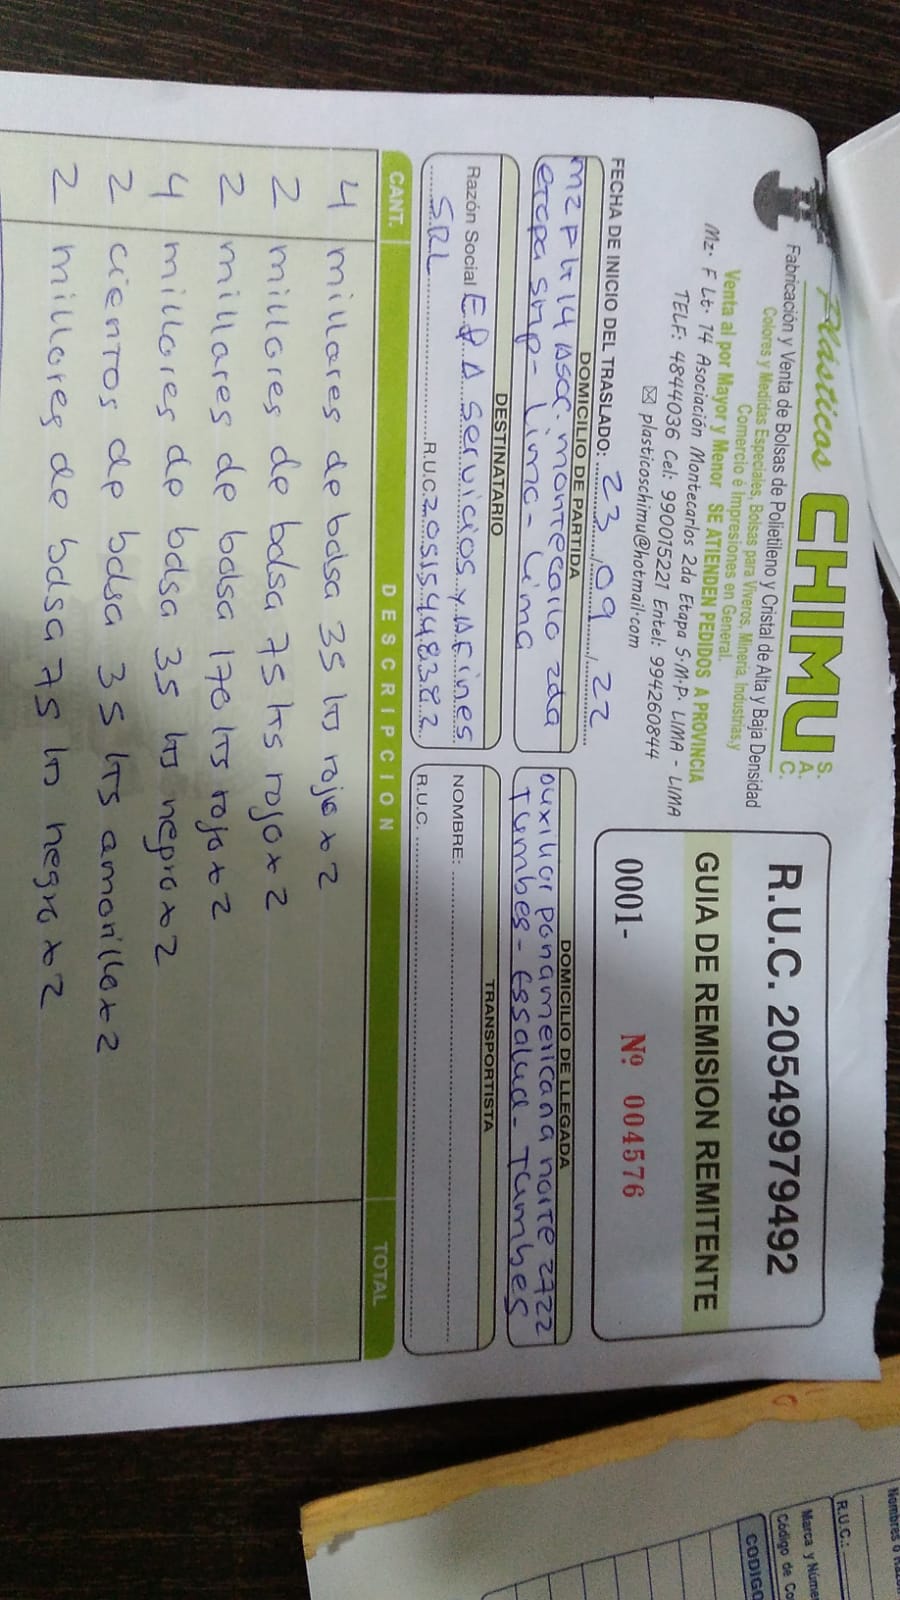 Plásticos CHIMU S.A.C.
Fabricación y Venta de Bolsas de Polietileno y Cristal de Alta y Baja Densidad
Colores y Medidas Especiales, Bolsas para Viveros, Minería, Industrias,y
Comercio é Impresiones en General.
Venta al por Mayor y Menor SE ATIENDEN PEDIDOS A PROVINCIA
Mz. F Lt. 14 Asociación Montecarlos 2da Etapa S.M.P. LIMA - LIMA
TELF: 4844036 Cel: 990015221 Entel: 994260844
plasticoschimu@hotmail.com
R.U.C. 20549979492
GUIA DE REMISION REMITENTE
0001- Nº 004576
FECHA DE INICIO DEL TRASLADO: 23 / 09 / 22
DOMICILIO DE PARTIDA
mz F lt 14 Asoc. montecarlo 2da
etapa smp - Lima - Lima
DOMICILIO DE LLEGADA
auxiliar panamericana norte 2722
Tumbes - Essalud - Tumbes
DESTINATARIO
Razón Social E & A Servicios y Afines
S.R.L R.U.C. 20515448382
TRANSPORTISTA
NOMBRE:
R.U.C.
CANT. DESCRIPCION TOTAL
4 millares de bolsa 35 lts rojo x 2
2 millares de bolsa 75 lts rojo x 2
2 millares de bolsa 170 lts rojo x 2
4 millares de bolsa 35 lts negro x 2
2 cientos de bolsa 35 lts amarillo x 2
2 millares de bolsa 75 lts negro x 2
R.U.C.:
Marca y Núme
Código de Co
CODIGO